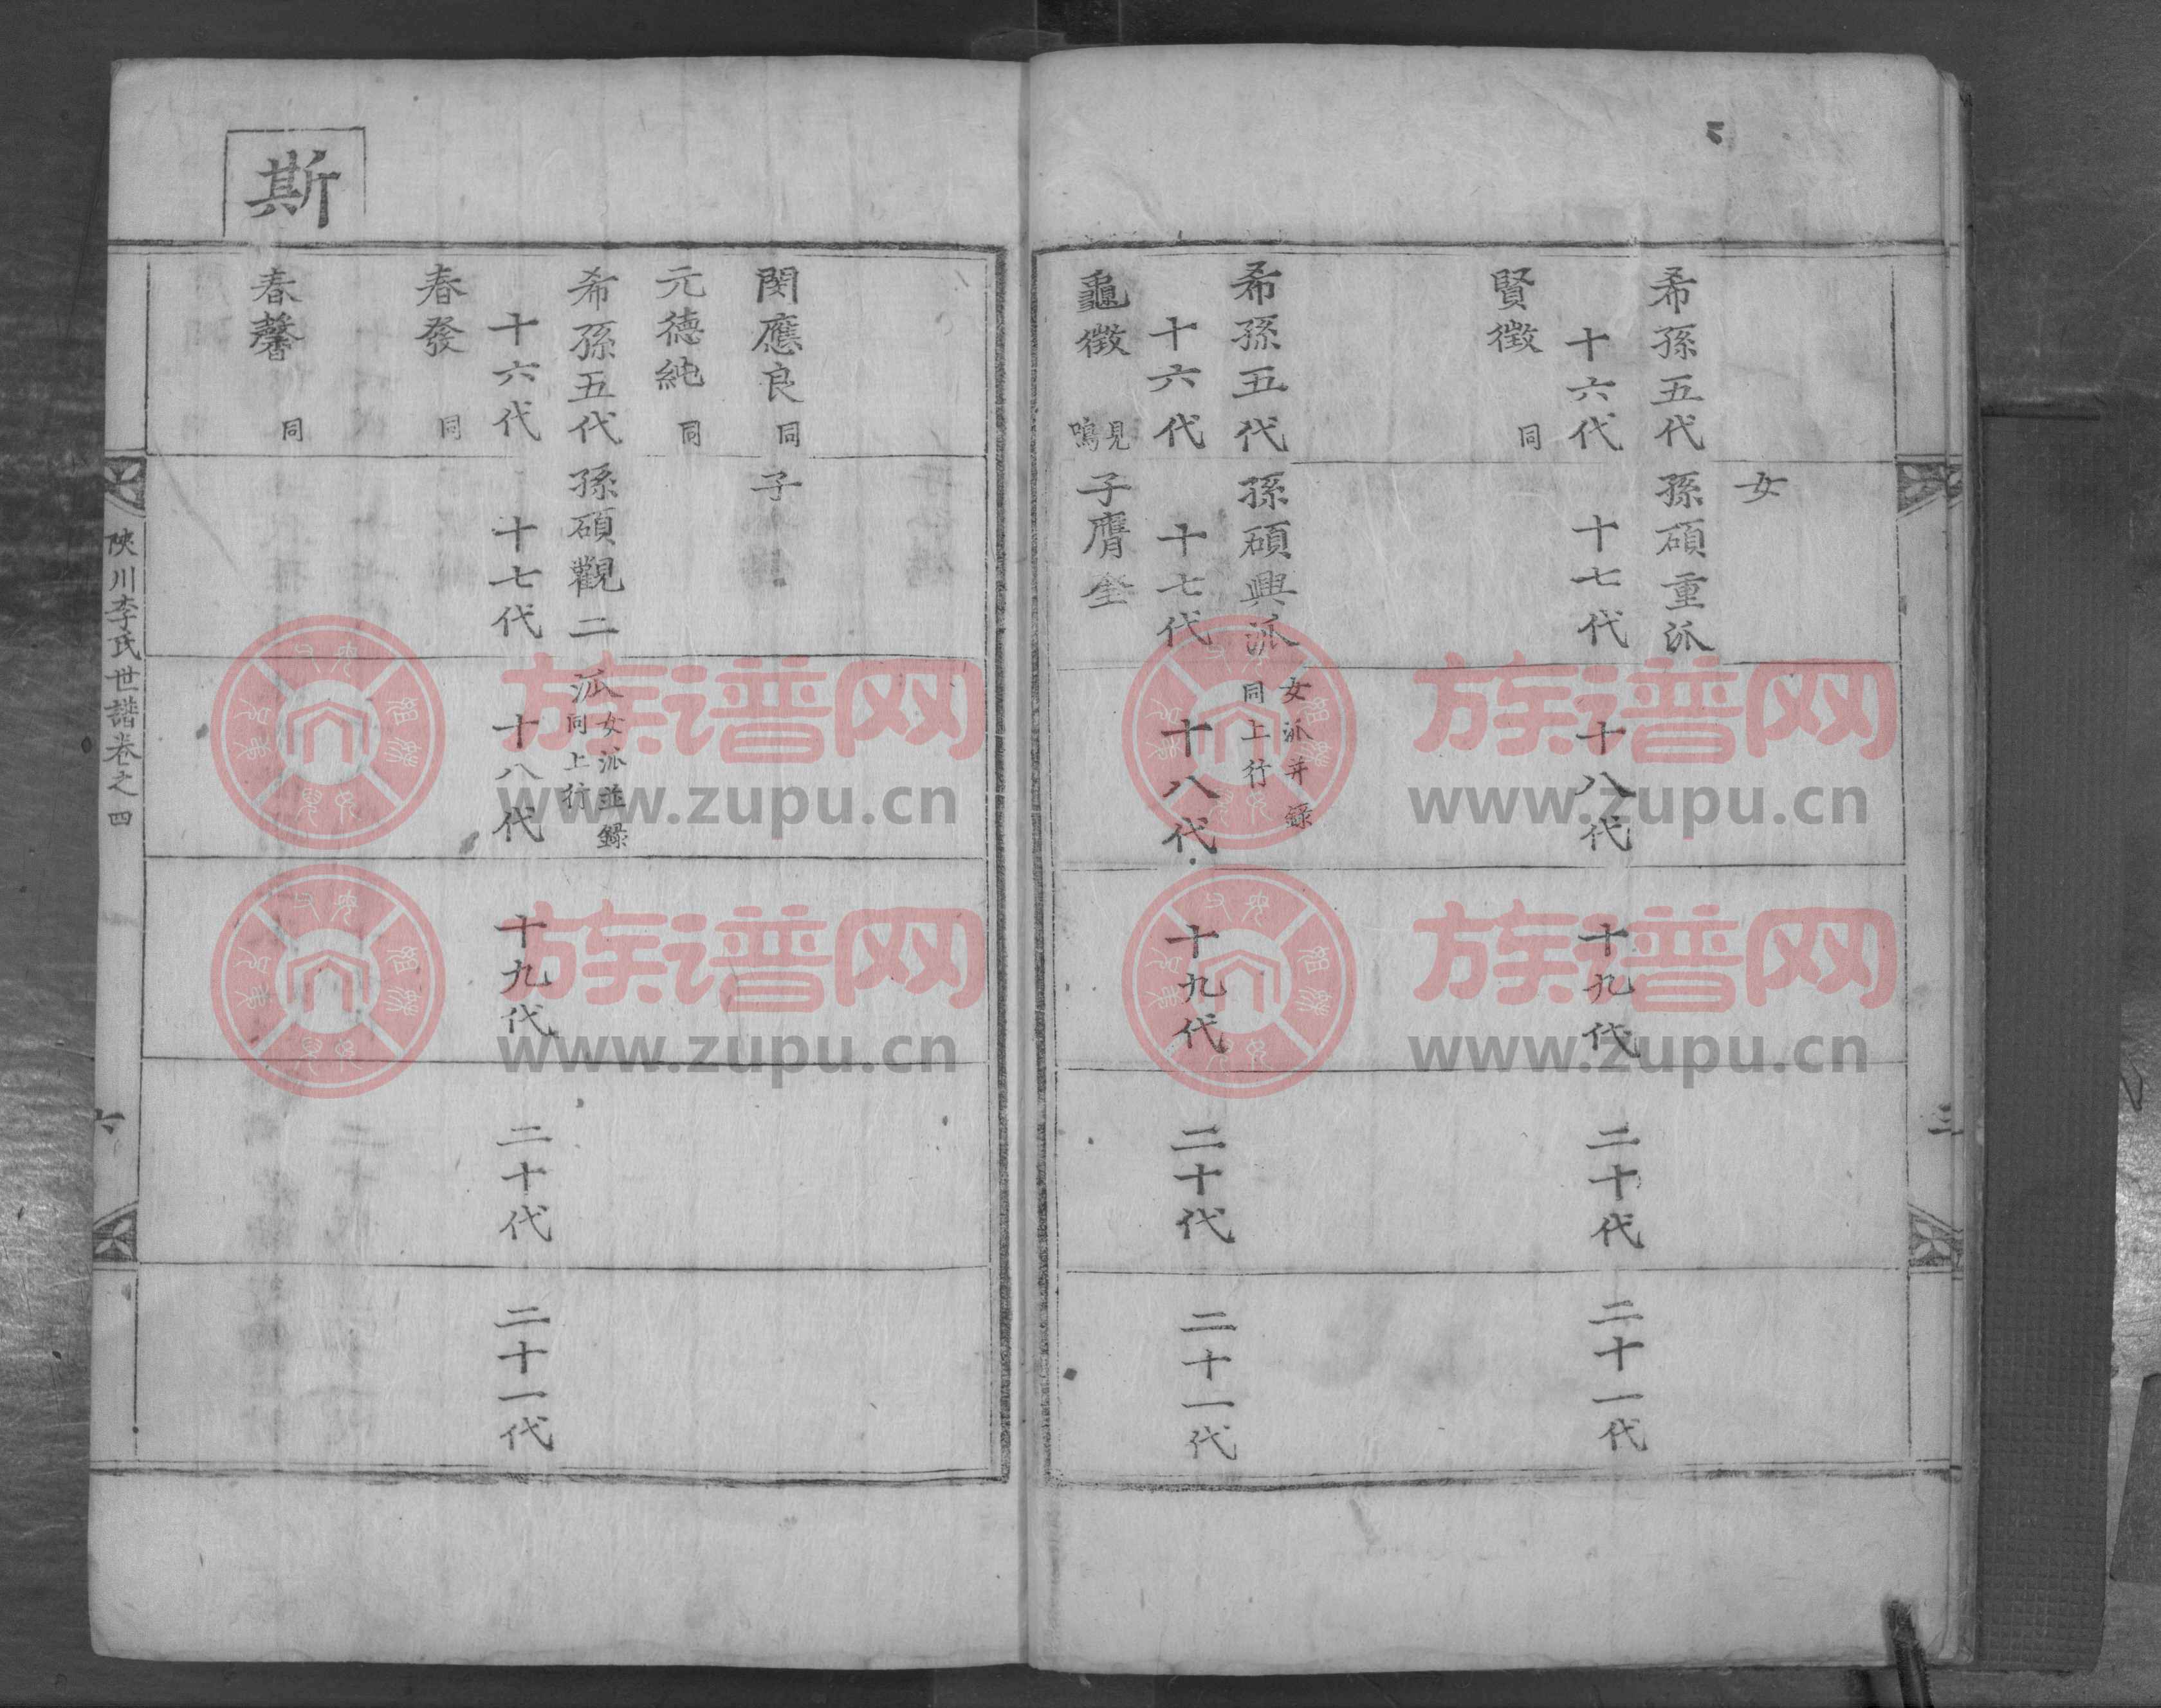 女
希孫五代孫碩重派
十六代 十七代 十八代 十九代 二十代 二十一代
賢徵 同
希孫五代孫碩興派 女派并錄同上行
十六代 十七代 十八代 十九代 二十代 二十一代
龜徵 見鳴 子膺全
三
閔應良 同 子
元德純 同
希孫五代孫碩觀二派 女派並錄同上行
十六代 十七代 十八代 十九代 二十代 二十一代
春發 同
春馨 同
斯
陜川李氏世譜卷之四
六
族谱网
www.zupu.cn
族谱网
www.zupu.cn
族谱网
www.zupu.cn
族谱网
www.zupu.cn